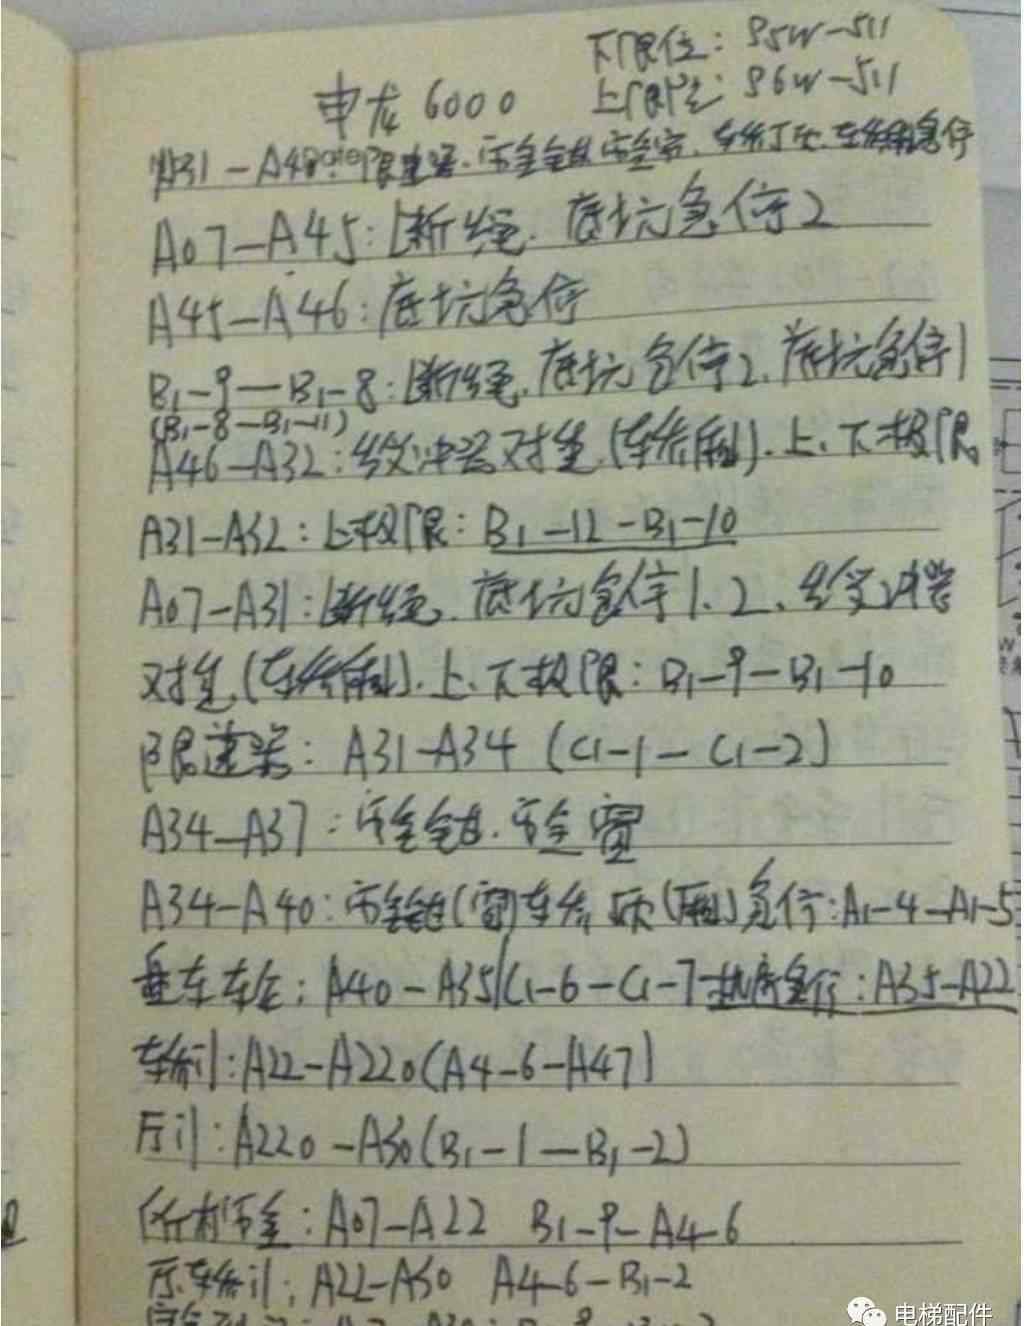 下限位: S5W-511
申龙 6000 上限位: S6W-511
A31-A40 限速器. 安全钳 安全窗. 轿顶 急停
A07-A45: 断绳. 底坑急停2
A45-A46: 底坑急停
B1-9-B1-8: 断绳. 底坑急停2. 底坑急停1
(B1-8-B1-11)
A46-A32: 缓冲器对重.(轿厢). 上、下极限
A31-A32: 上极限: B1-12-B1-10
A07-A31: 断绳. 底坑急停1、2、缓冲器
对重(轿厢). 上、下极限: B1-9-B1-10
限速器: A31-A34 (C1-1-C1-2)
A34-A37: 安全钳. 安全窗
A34-A40: 安全钳(窗)轿顶(厢)急停: A1-4-A1-5
盘车 : A40-A35/C1-6-C1-7 机房急停: A35-A22
轿门: A22-A220(A4-6-A47)
厅门: A220-A30(B1-1-B1-2)
所有安全: A07-A22 B1-9-A4-6
厅.轿门: A22-A30 A4-6-B1-2
电梯配件